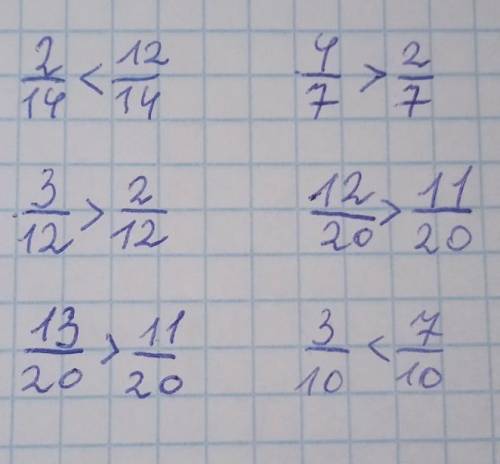 2/14 < 12/14   4/7 > 2/7
3/12 > 2/12   12/20 > 11/20
13/20 > 11/20   3/10 < 7/10